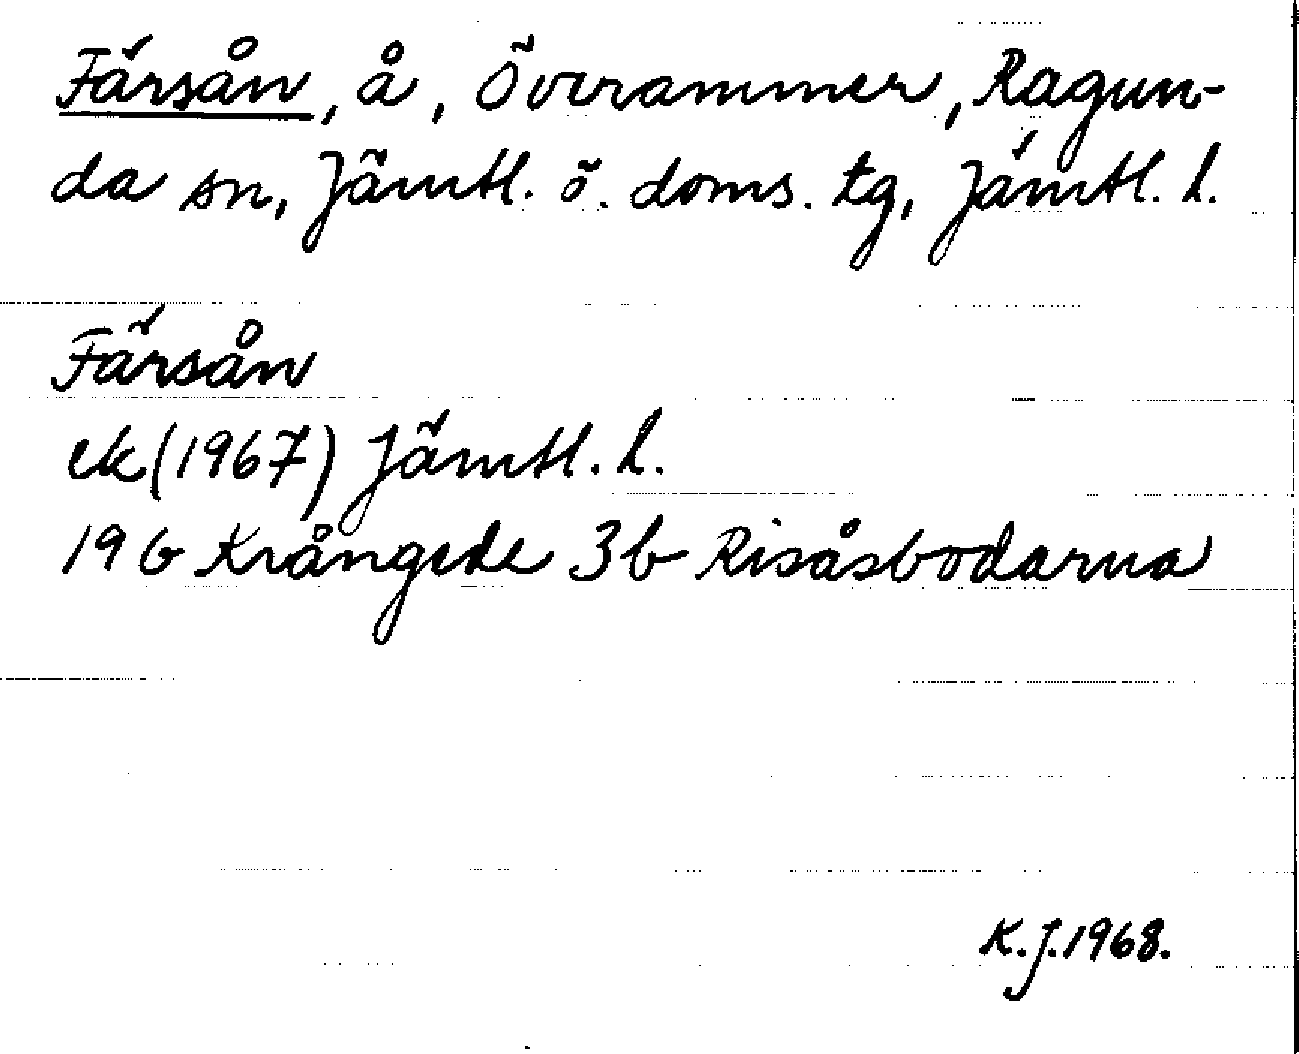 Färsån, å, Överammer, Ragun-
da sn, Jämtl. ö. doms. tg, Jämtl. l.
Färsån
ek (1967) Jämtl. l.
19 G Krångede 3b Risåsbodarna
K.J. 1968.